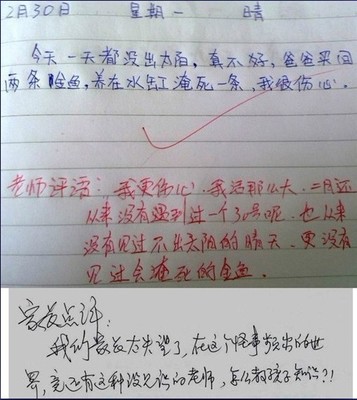 2月30日 星期一 晴
今天一天都没出太阳，真不好，爸爸买回
两条金鱼，养在水缸淹死一条，我很伤心。
老师评语：我更伤心，我活那么大，二月还
从来没有遇到过一个30号呢，也从来
没有见过不出太阳的晴天，更没有
见过会淹死的金鱼。
家长点评：
我的家长太失望了，在这个怪事频出的世
界，竟还有这种没见识的老师，怎么教孩子知识？！